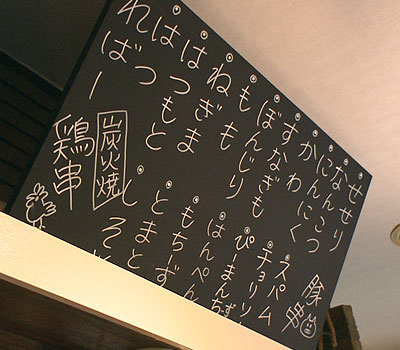 せせり
なんこつ
にんにく
かわ
すなぎも
ぼんじり
もも
ねぎま
はつもと
はつ
ればー
炭火焼
鶏串
豚串
スパム
チョリソー
ぴーまんちーず
はんぺん
もちーず
とまと
しそ